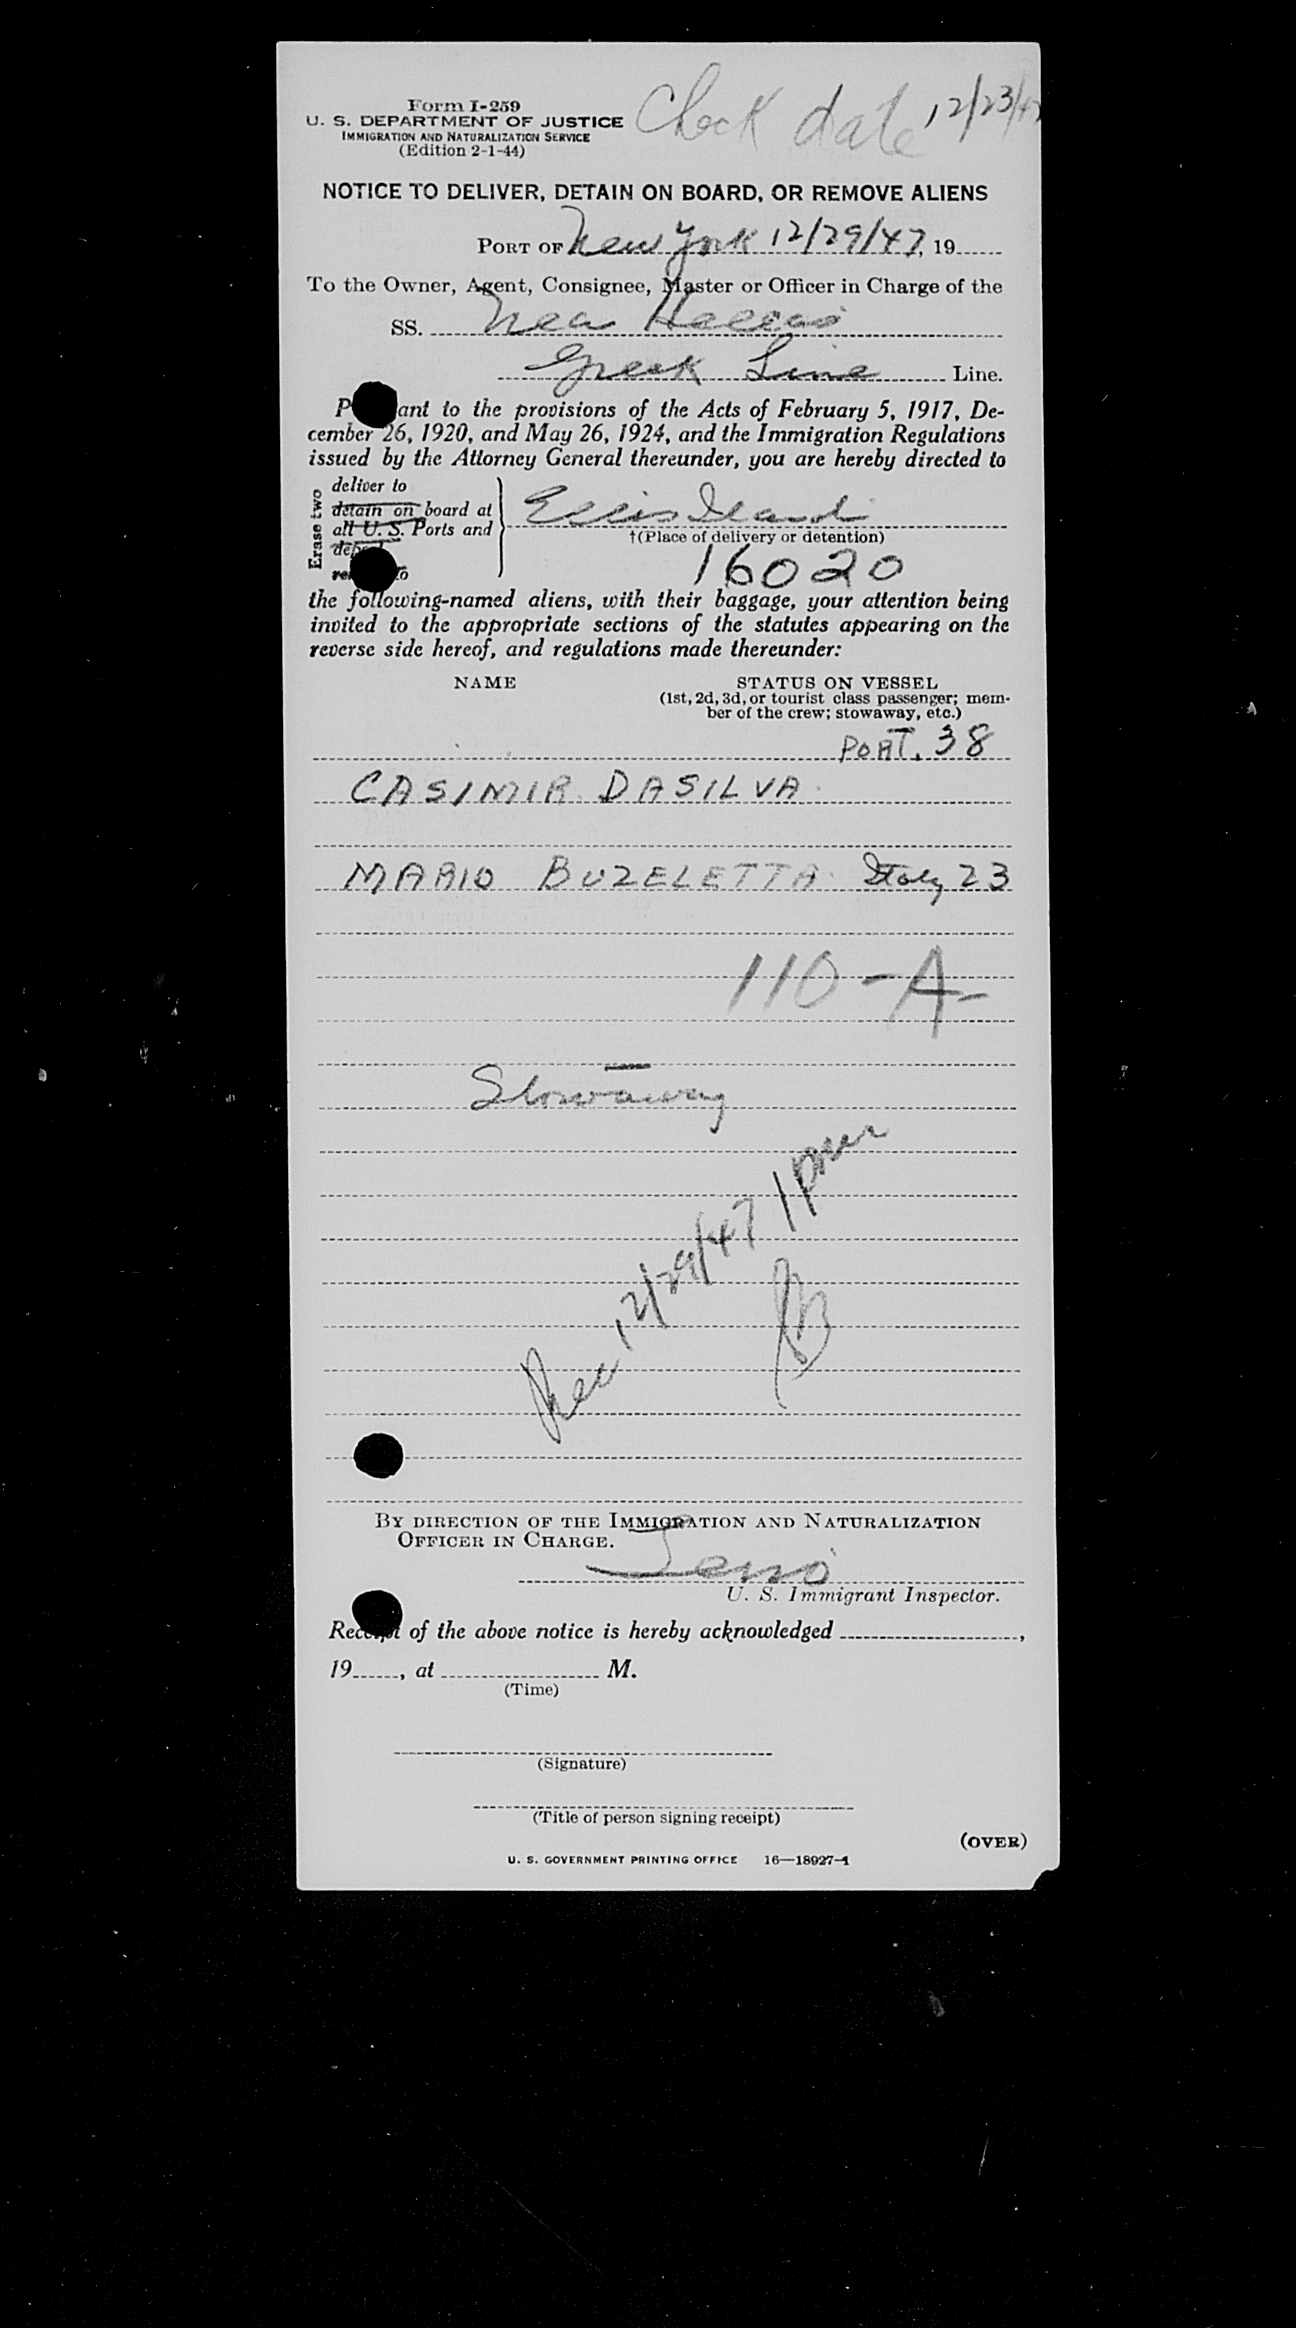 Form I-259
U. S. DEPARTMENT OF JUSTICE
IMMIGRATION AND NATURALIZATION SERVICE
(Edition 2-1-44)
Check date 12/23/47
NOTICE TO DELIVER, DETAIN ON BOARD, OR REMOVE ALIENS
PORT OF New York 12/29/47, 19
To the Owner, Agent, Consignee, Master or Officer in Charge of the
SS. Nea Hellas
Greek Line Line.
P ant to the provisions of the Acts of February 5, 1917, De-
cember 26, 1920, and May 26, 1924, and the Immigration Regulations
issued by the Attorney General thereunder, you are hereby directed to
Erase two
deliver to
detain on board at
all U. S. Ports and
to
Ellis Island
†(Place of delivery or detention)
16020
the following-named aliens, with their baggage, your attention being
invited to the appropriate sections of the statutes appearing on the
reverse side hereof, and regulations made thereunder:
NAME
STATUS ON VESSEL
(1st, 2d, 3d, or tourist class passenger; mem-
ber of the crew; stowaway, etc.)
PORT. 38
CASIMIR DASILVA
MARIO BUZELETTA Italy 23
110-A-
Stowaway
Rec 12/29/47 1 pm
By direction of the Immigration and Naturalization
Officer in Charge.
U. S. Immigrant Inspector.
Receipt of the above notice is hereby acknowledged ,
19 , at M.
(Time)
(Signature)
(Title of person signing receipt)
(OVER)
U. S. GOVERNMENT PRINTING OFFICE 16—18927-1